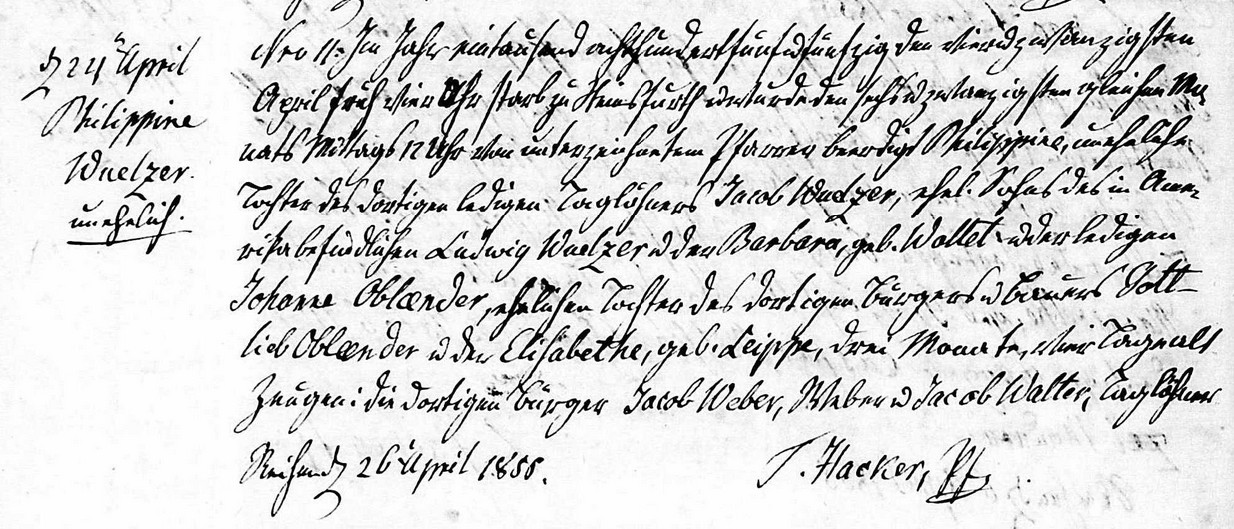 d 24 April
Philippine
Waelzer.
unehelich.
Nro 11. Im Jahr eintausend achthundert fünf u fünfzig den vier u zwanzigsten
April früh vier Uhr starb zu Steinsfurth u wurde den sechs u zwanzigsten gleichen Mo-
nats Mittags 12 Uhr von unterzeichnetem Pfarrer beerdigt Philippine, uneheliche
Tochter des dortigen ledigen Taglöhners Jacob Waelzer, ehel. Sohns des in Ame-
rika befindlichen Ludwig Waelzer u der Barbara, geb. Wollet u der ledigen
Johanne Oblænder, ehelichen Tochter des dortigen Bürgers u Bauers Gott-
lieb Oblænder u der Elisabethe, geb. Leippe, drei Monate, vier Tage alt
Zeugen: die dortigen Bürger Jacob Weber, Weber u Jacob Walter, Taglöhner
Reihen d 26 April 1855.
T. Hacker, Pf